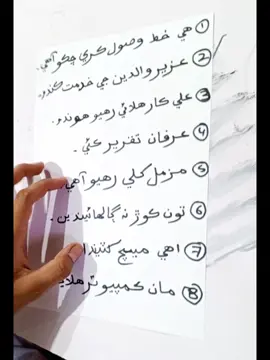 ① هي خط وصول ڪري چڪو آهي.
② عزير والدين جي خدمت ڪندو.
③ علي ڪار هلائي رهيو هوندو.
④ عرفان تقرير ڪئي.
⑤ مزمل کلي رهيو آهي.
⑥ تون ڪوڙ نہ ڳالهائيندين.
⑦ اهي ميچ کٽيندا
⑧ مان ڪمپيوٽر هلايا